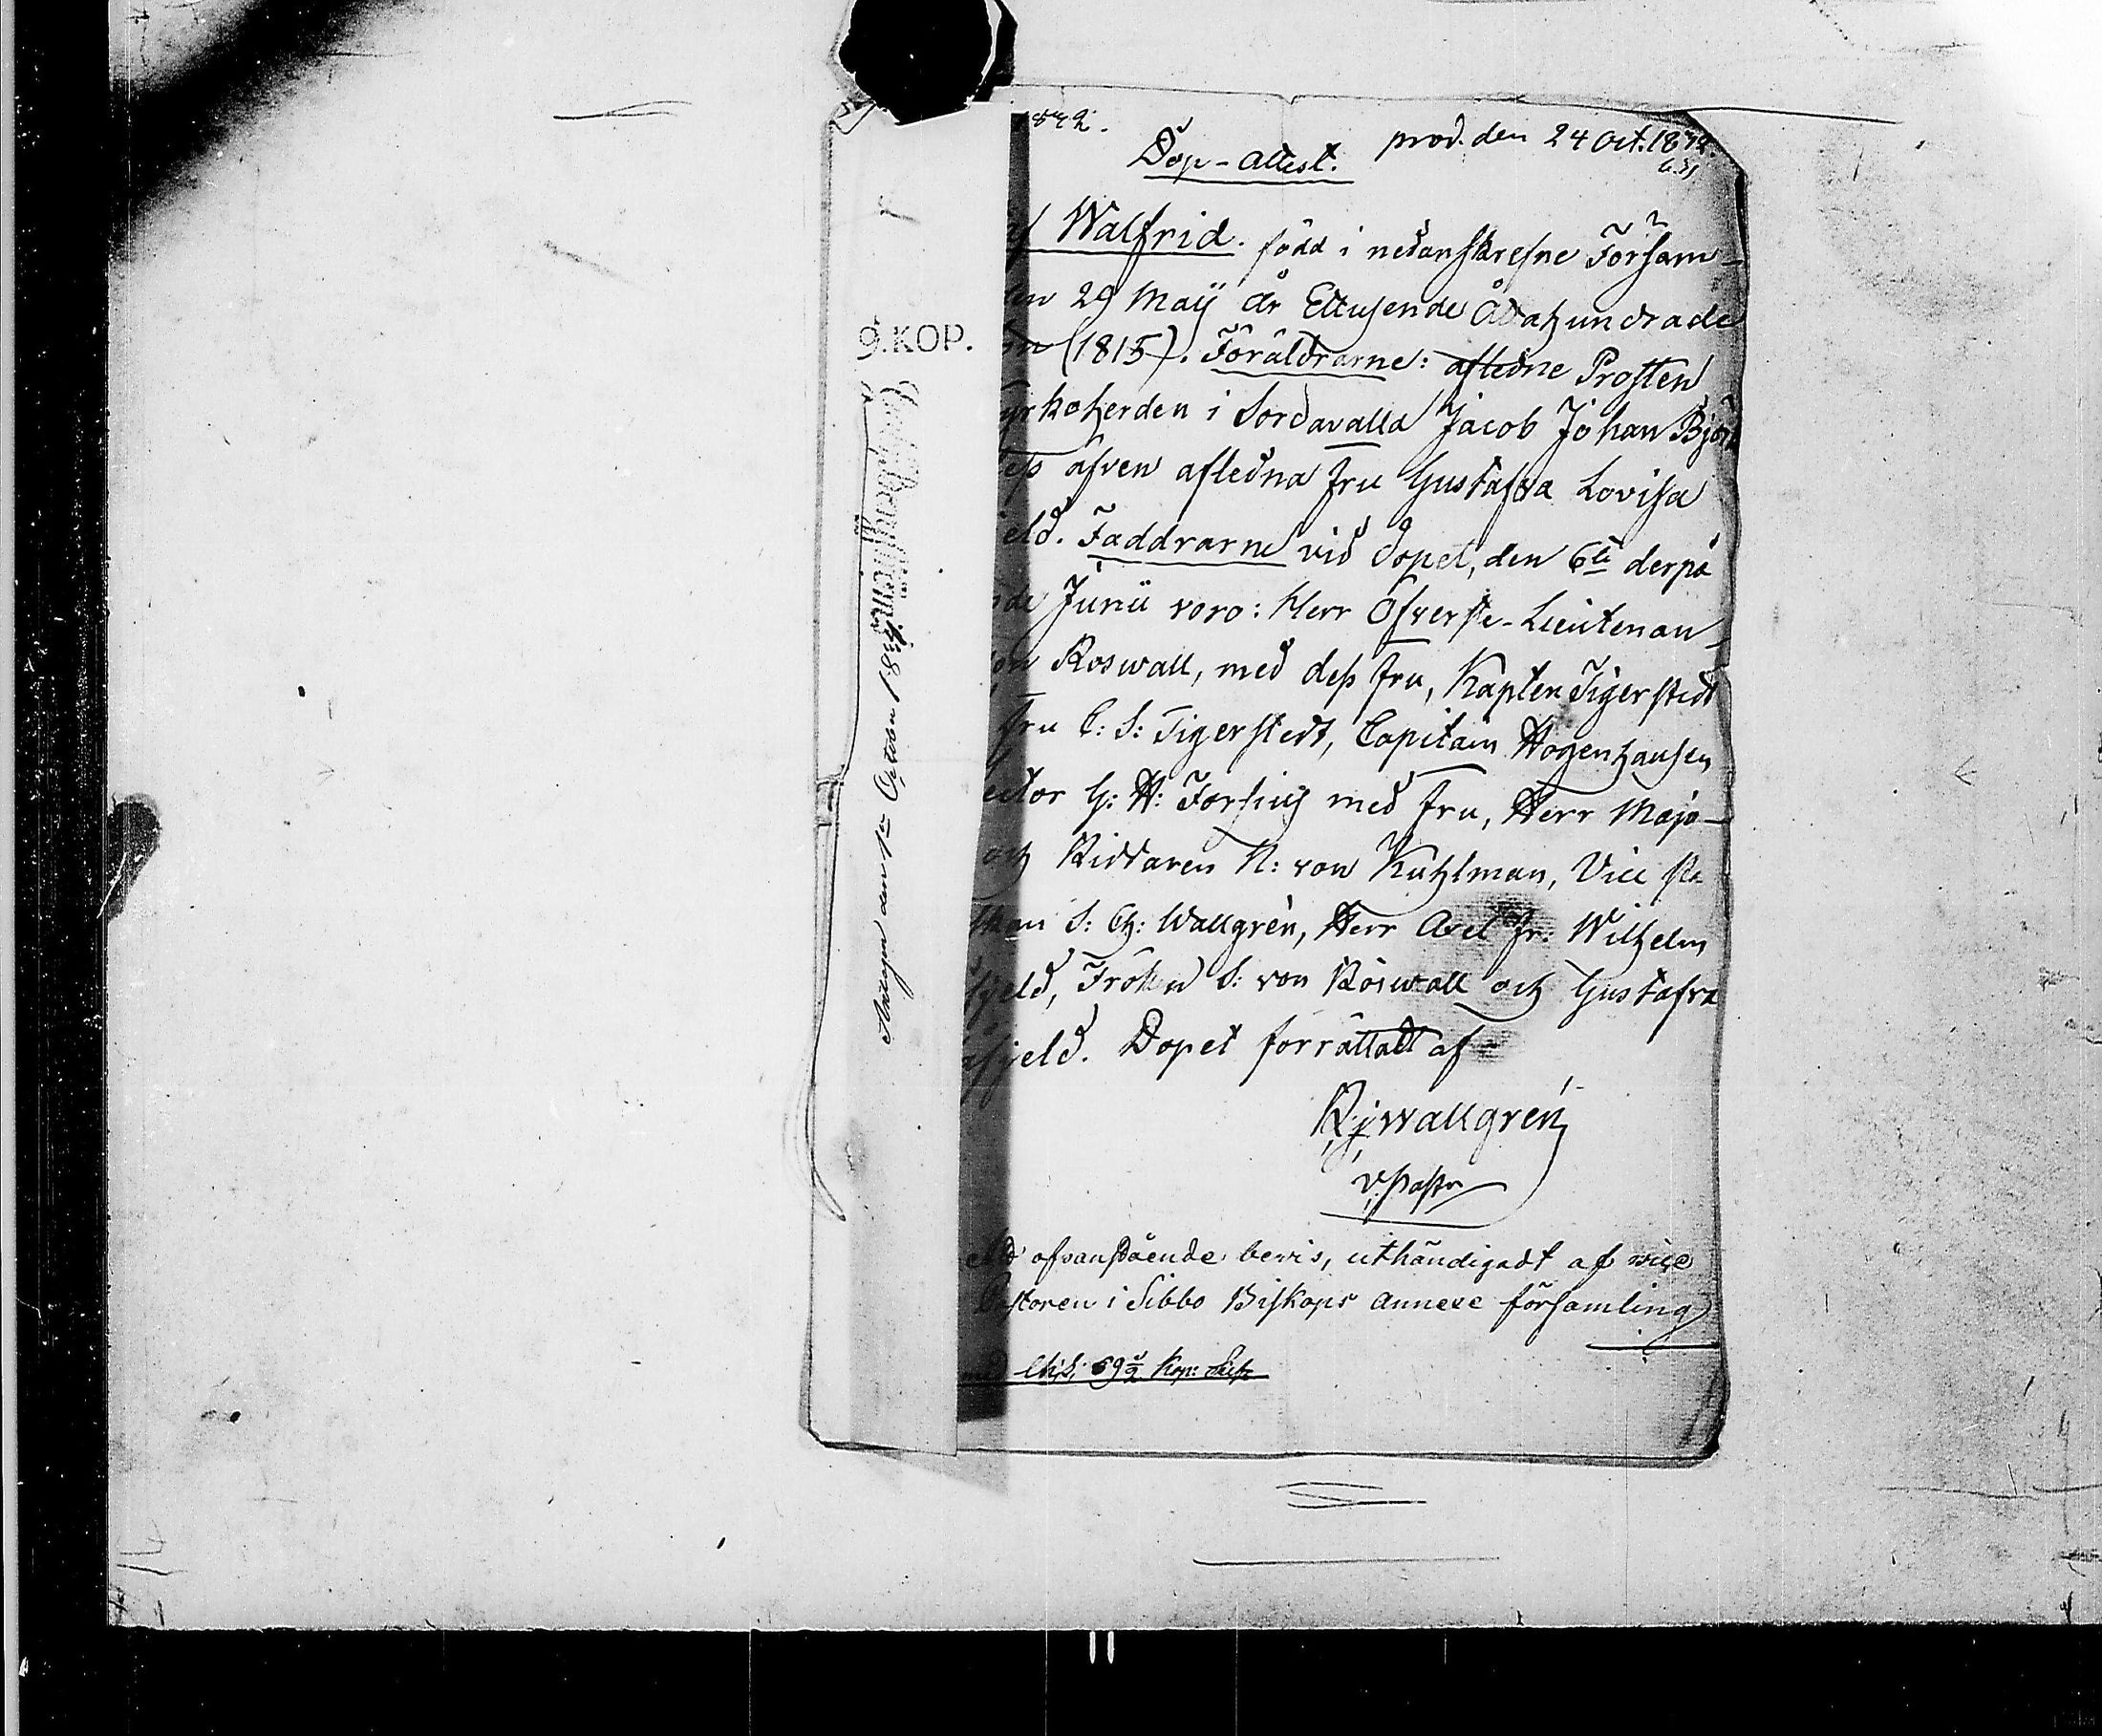 842.
prod. den 24 Oct. 1842.
Döp-Attest.
Walfrid. född i nedanskrefne Församen
29 Maij år Ettusende Åttahundrade
(1815). Föräldrarne: afledne Prosten
yrkoherden i Sordavalla Jacob Johan Björk
äfven afledna Fru Gustafva Lovisa
eld. Faddrarne vid dopet, den 6te derpå
de Junii voro: Herr Öfverste-Lieutenan
on Roswall, med dess Fru, Kapten Tigerstedt
Fru C: S: Tigerstedt, Capitain Hogenhausen
ector G: H: Forsius med Fru, Herr Majo
och Riddaren N: von Kuhlman, Vice
S: Ch: Wallgrén, Herr Axel Fr: Wilhelm
fjeld, Fröken S: von Roswall och Gustafva
fjeld. Dopet förrättadt af
R J Wallgrén
v. Pastor
ofvanstående bevis, uthändigadt af vice
Pastoren i Sibbo Biskops Annexe församling
Kop: Silfr
9. KOP.
Antagen den 1e October 184